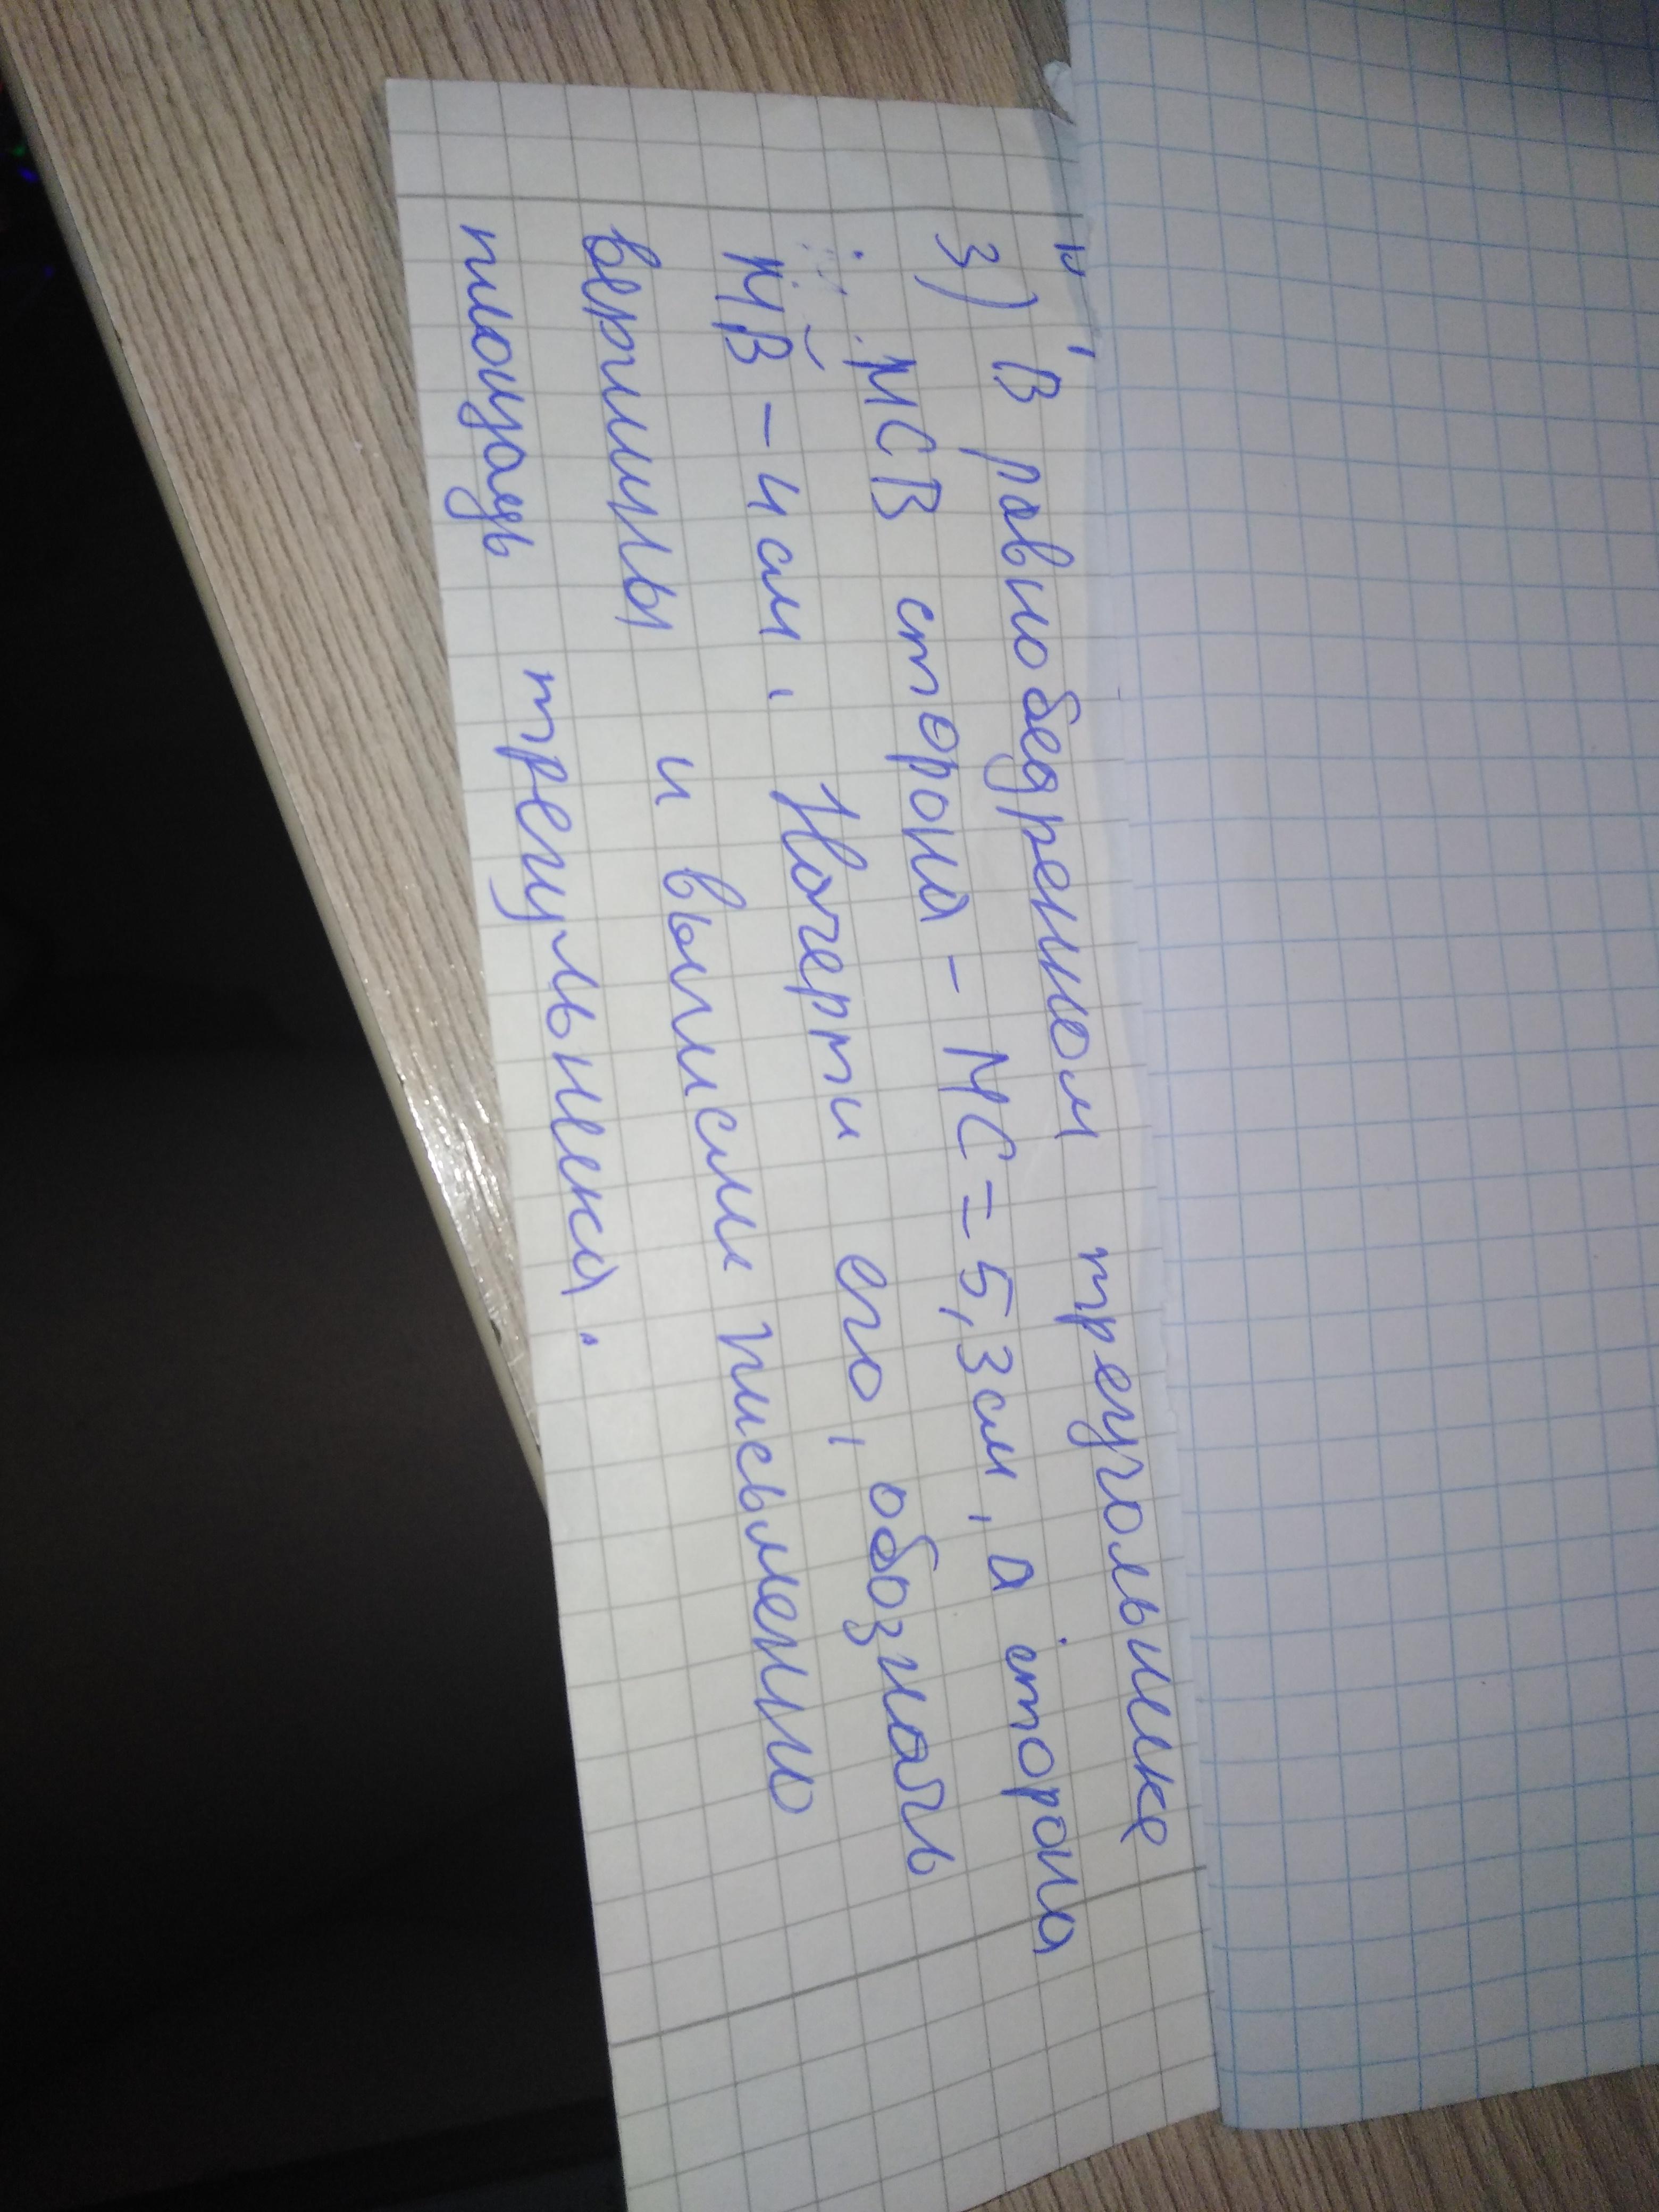 3) В равнобедренном треугольнике
МСВ сторона - МС = 5,3 см, а сторона
МВ - 4 см. Начерти его, обозначь
вершины и вычисли письменно
площадь треугольника.